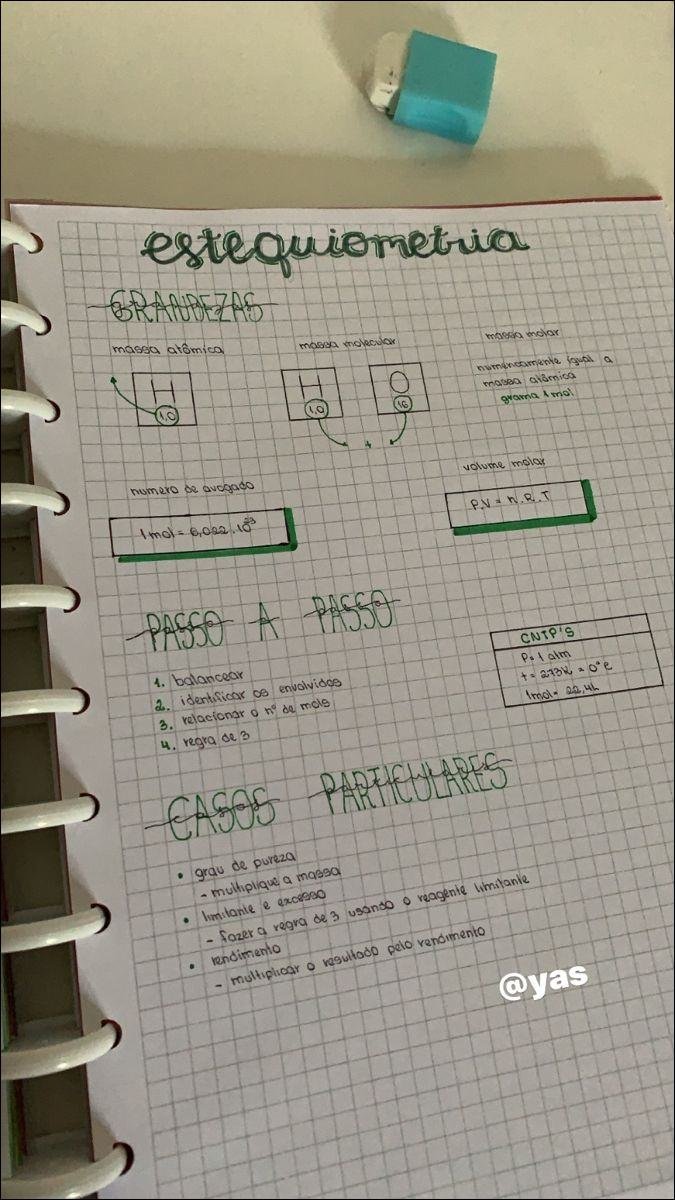 estequiometria
GRANDEZAS
massa atômica
H
1.0
massa molecular
H
1.0
O
16
+
massa molar
numericamente igual a
massa atômica
grama 1 mol
numero de avogado
1 mol = 6,022 . 10²³
volume molar
P.V = n.R.T
PASSO A PASSO
1. balancear
2. identificar os envolvidos
3. relacionar o nº de mols
4. regra de 3
CNTP'S
P= 1 atm
t = 273K = 0°C
1mol = 22,4L
CASOS PARTICULARES
• grau de pureza
- multiplique a massa
• limitante e excesso
- fazer a regra de 3 usando o reagente limitante
• rendimento
- multiplicar o resultado pelo rendimento
@yas